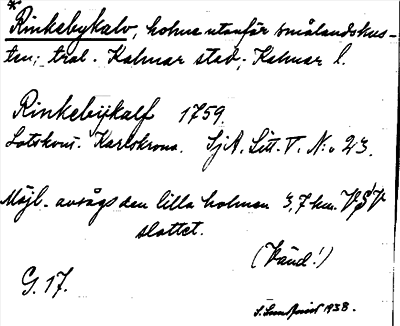 *
Rinkebykalv, holme utanför smålandskus-
ten; trol. Kalmar stad; Kalmar l.
Rinkebijkalf 1759.
Lotskont. Karlskrona. SjA. Litt. V. N:o 23.
Möjl. avsågs den lilla holmen 3,7 km. VSV
slottet.
(Vänd!)
G. 17.
1938.